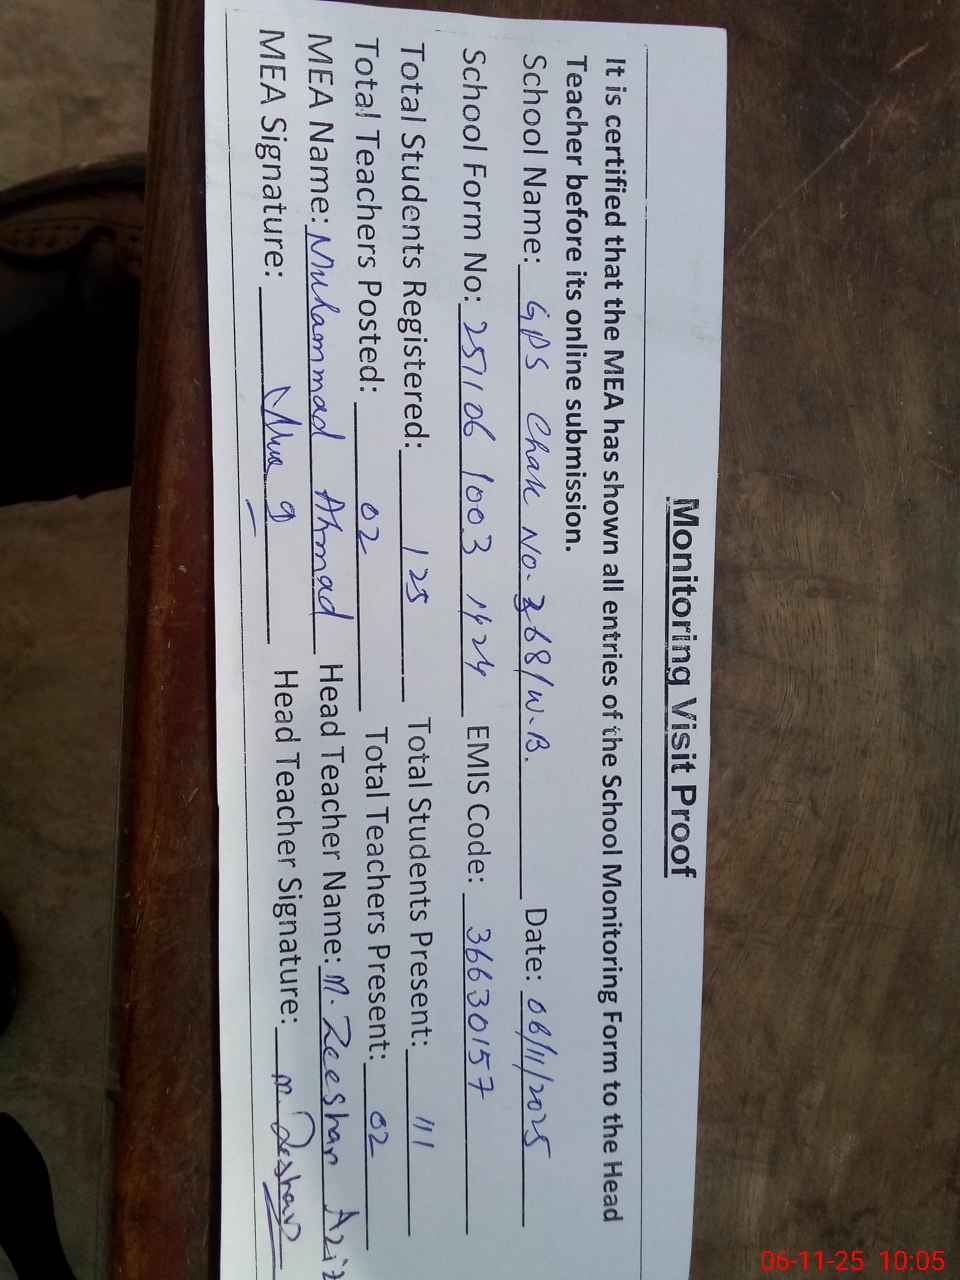 Monitoring Visit Proof
It is certified that the MEA has shown all entries of the School Monitoring Form to the Head
Teacher before its online submission.
School Name: GPS Chak No. 368/W.B. Date: 06/11/2025
School Form No: 251106 1003 1424 EMIS Code: 36630157
Total Students Registered: 125 Total Students Present: 111
Total Teachers Posted: 02 Total Teachers Present: 02
MEA Name: Muhammad Ahmad Head Teacher Name: M. Zeeshan Aziz
MEA Signature: Head Teacher Signature: M. Zeshan
06-11-25 10:05